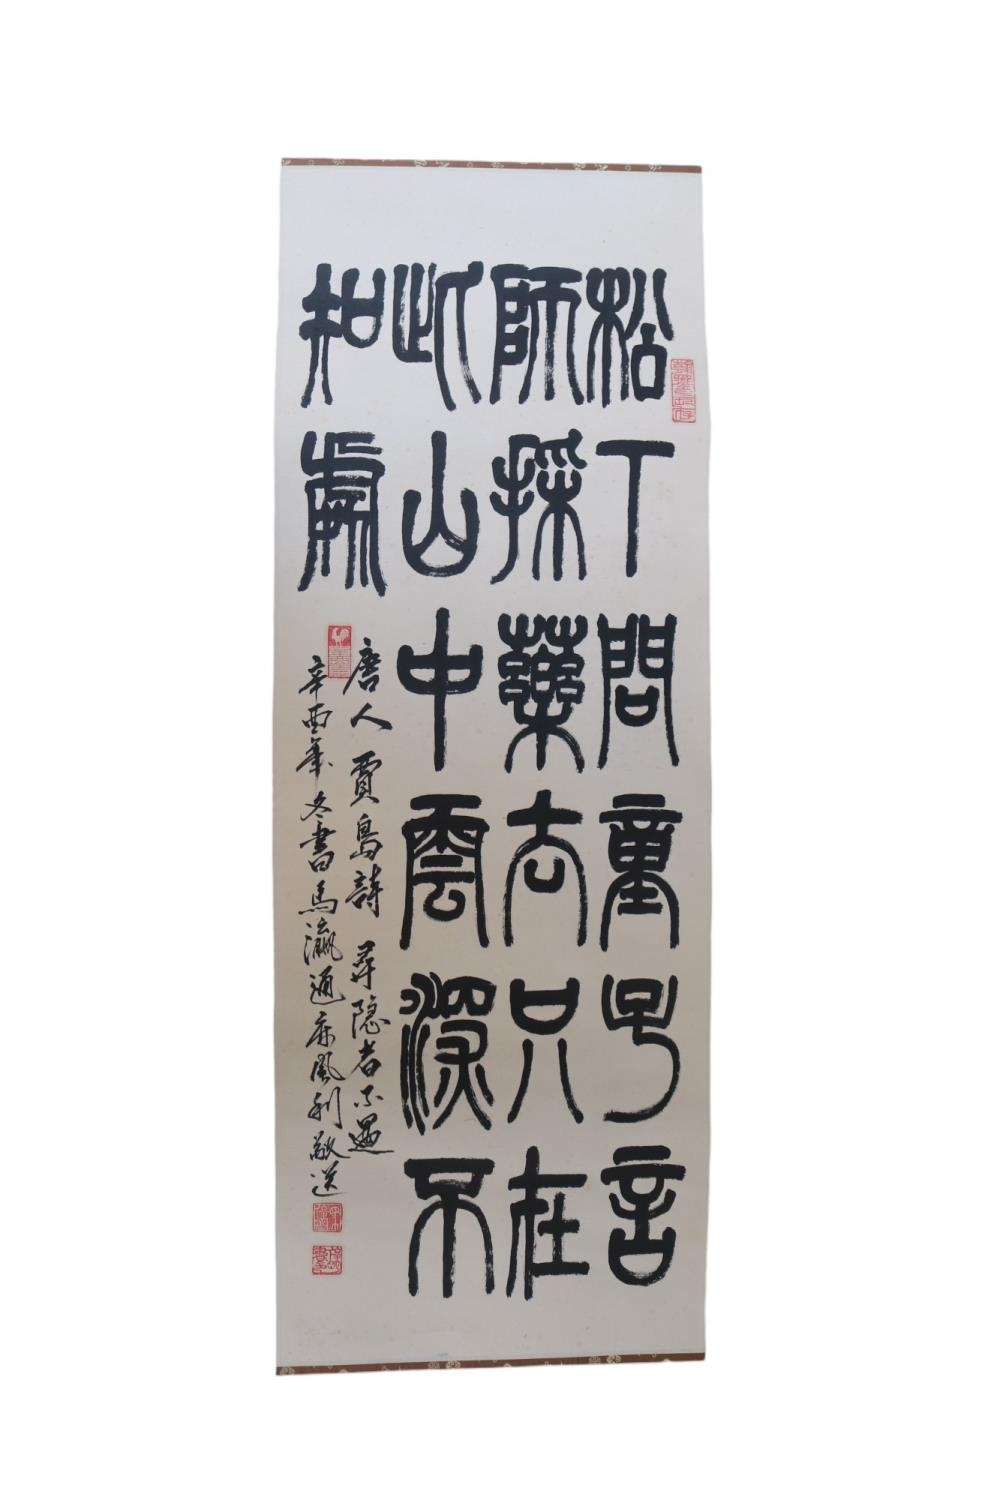 松下問童子言
師採藥去只在
此山中雲深不
知處
唐人賈島詩 尋隱者不遇
辛酉年冬書馬瀛通